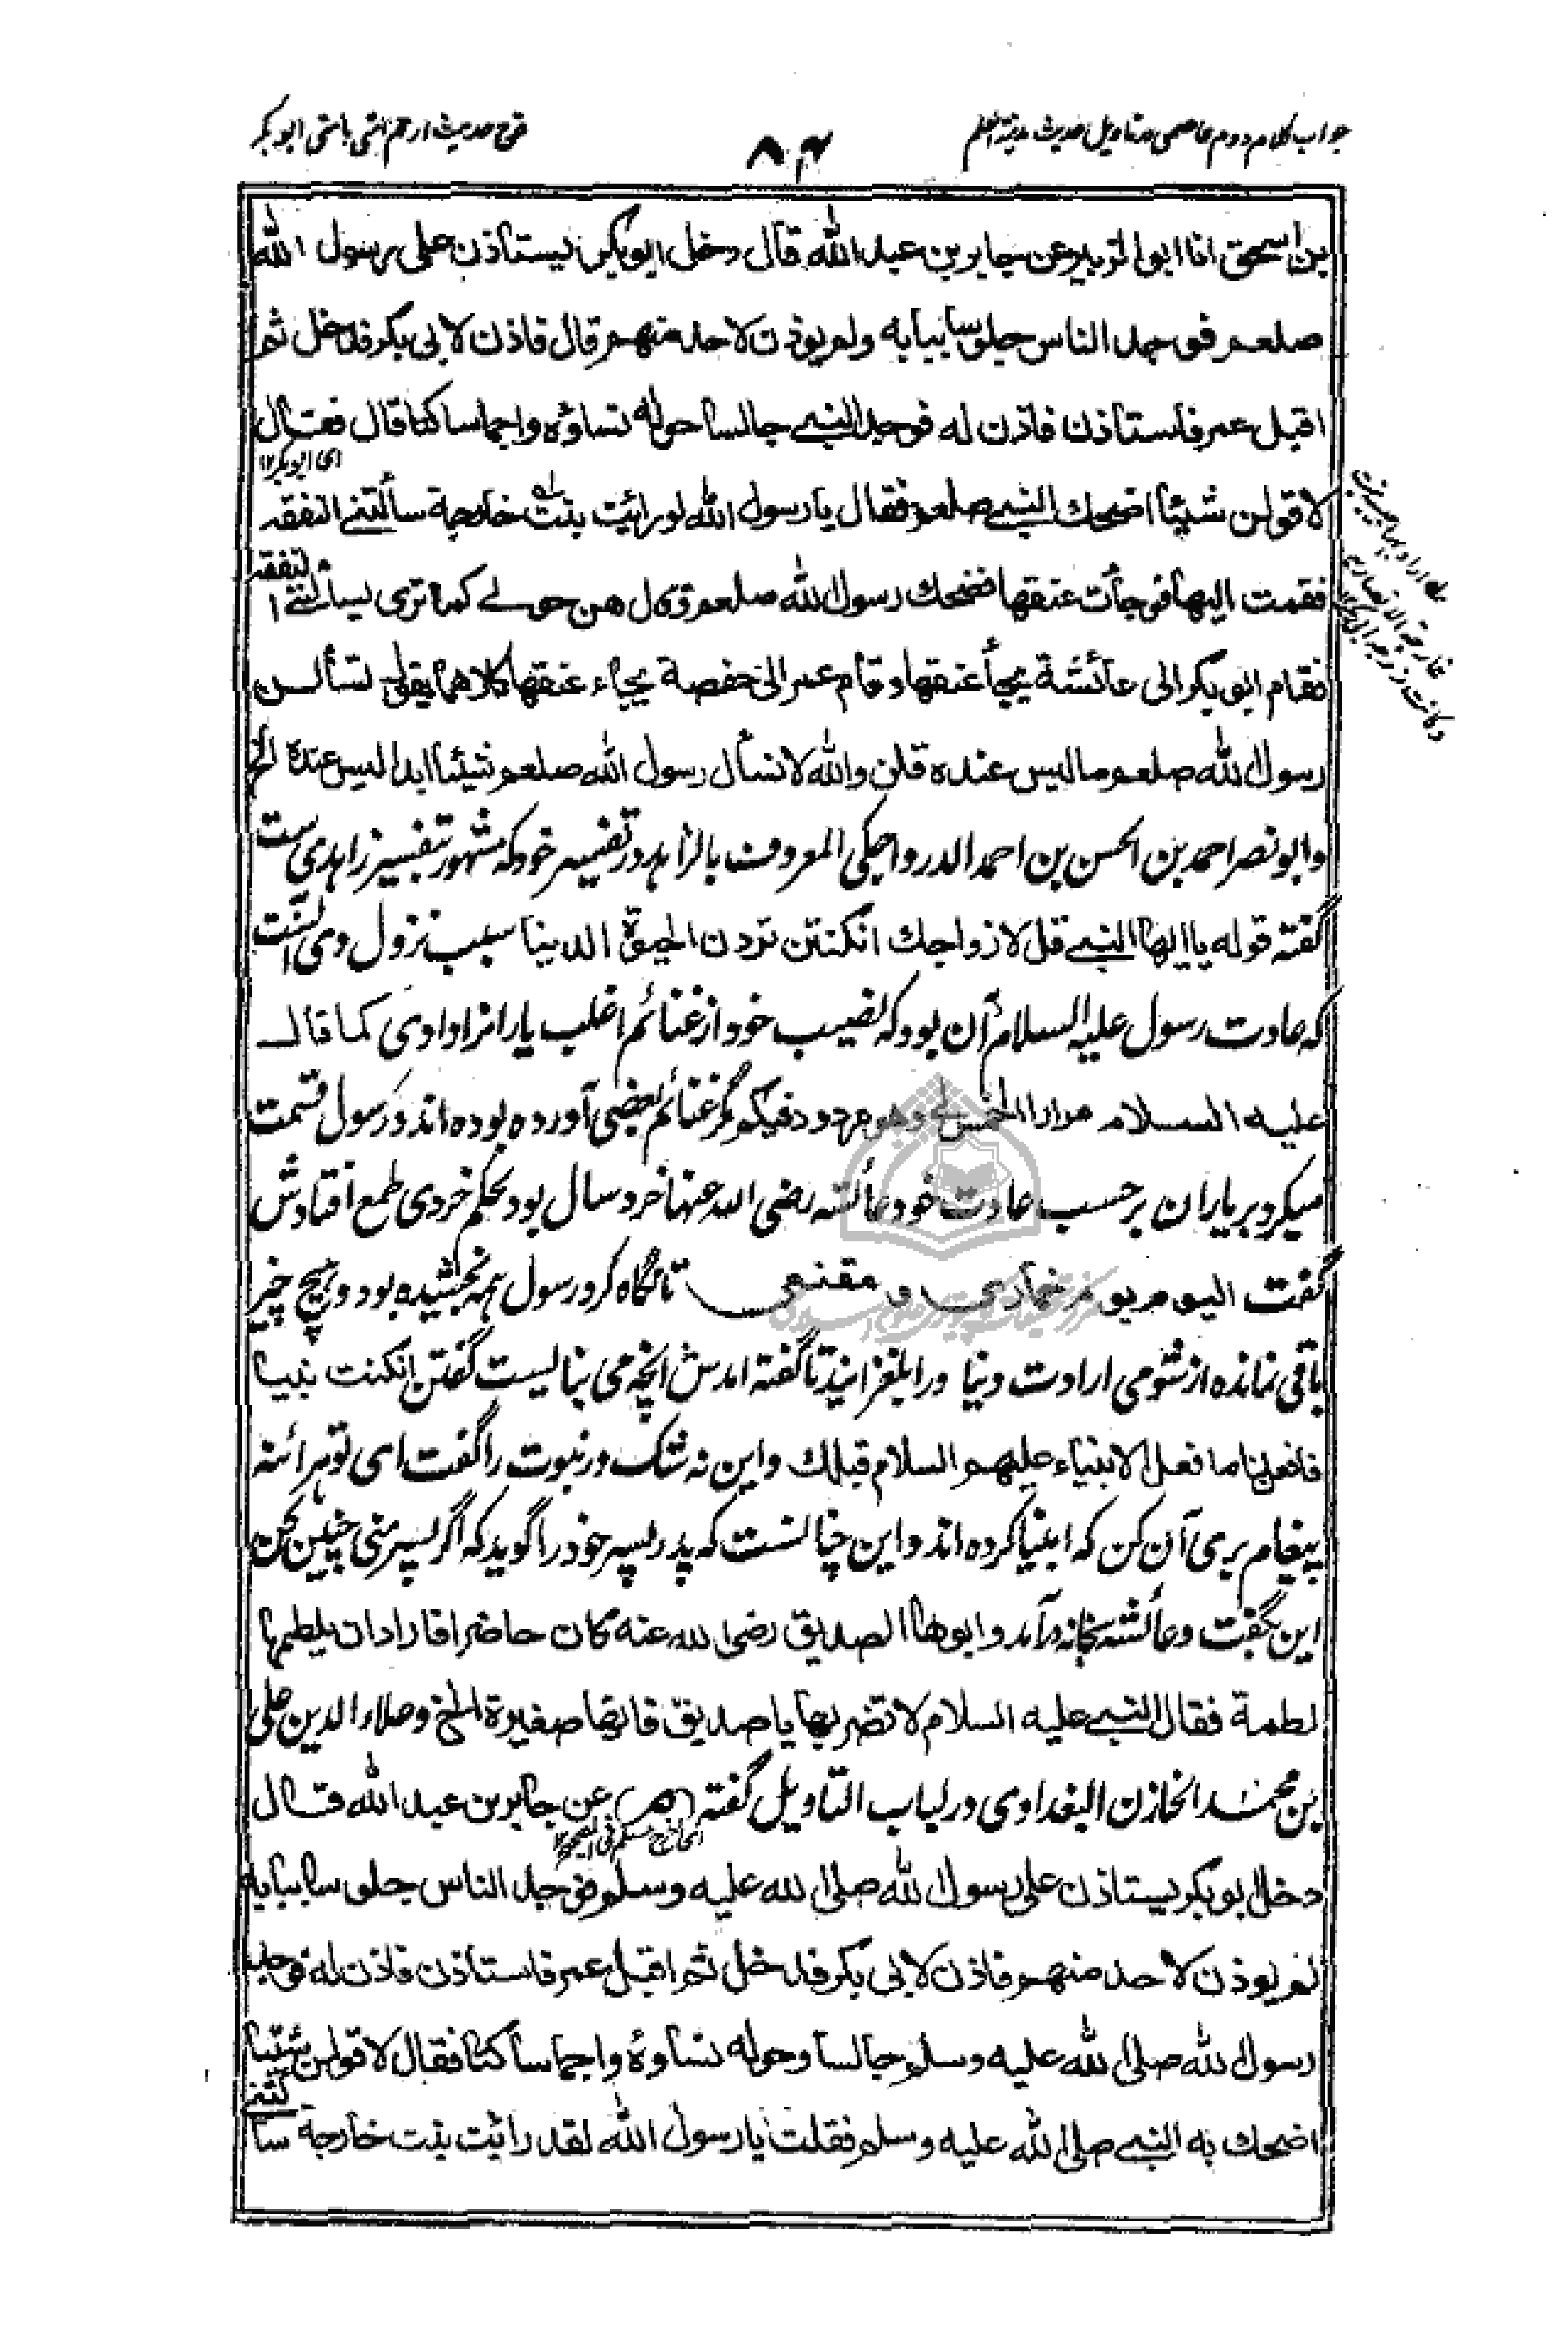 جواب کلام دوم عاصمی در تاویل حدیث مدینة العلم
۸۴
قدح حدیث ارحم امتی بامتی ابو بکر
بن اسحق انا ابو الزبير عن جابر بن عبد الله قال دخل ابو بكر يستاذن على رسول الله
صلعم فوجد الناس جلوسا ببابه ولم يوذن لاحد منهم قال فاذن لابي بكر فدخل ثم
اقبل عمر فاستاذن فاذن له فوجد النبي جالسا حوله نساؤه واجما ساكتا قال فقال
ای ابو بکر ۱۲
لاقولن شيئا اضحك النبي صلعم فقال يا رسول الله لو رائيت بنت خارجة سألتني النفقه
فقمت اليها فوجأت عنقها فضحك رسول الله صلعم وقال هن حولي كما ترى يسألنني النفقة
فقام ابو بكر الى عائشة يجأ عنقها وقام عمر الى حفصة يجاء عنقها كلاهما يقول تسألن
رسول الله صلعم ما ليس عنده قلن والله لا نسأل رسول الله صلعم شيئا ابدا ليس عنده الخ
وابو نصر احمد بن الحسن بن احمد الدرواجکی المعروف بالزاهد در تفسیر خود که مشهور بتفسیر زاهدی ست
گفته قوله يا ايها النبي قل لازواجك ان كنتن تردن الحيوة الدينا سبب نزول وی آنست
که عادت رسول علیه السلام آن بود که نصیب خود از غنائم اغلب یارانرا دادی کما قال
عليه السلام الخمس لي وهو مردود فيكم مگر غنائم بعضی آورده بوده اند و رسول قسمت
میکرد بر یاران بر حسب عادت خود عائشه رضی الله عنها خرد سال بود بحکم خردی طمع افتادش
گفت اليوم يوم خماري و مقنعي تا نگاه کرد رسول همه بخشیده بود و هیچ چیز
باقی نمانده از شومی ارادت دنیا ورا بلغزانید تا گفته امدش انچه می نبایست گفتن ان كنت نبيا
فافعل بنا ما فعل الانبياء عليهم السلام قبلك و این نه شک در نبوت را گفت ای تو هر ائنه
پیغامبری آن کن که انبیا کرده اند و این چنانست که پدر پسر خود را گوید که اگر پسر منی چنین کن
این بگفت و عائشه بخانه درآمد و ابوها الصديق رضي الله عنه كان حاضرا فارادان يلطمها
لطمة فقال النبي عليه السلام لا تضربها يا صديق فانها صغيرة الخ وعلاء الدين علی
بن محمد الخازن البغدادی در لباب التاویل گفته (م) عن جابر بن عبد الله قال
ای اخرج مسلم فی الصحیح ۱۲
دخل ابو بكر يستاذن على رسول الله صلى الله عليه وسلم فوجد الناس جلوسا ببابه
لم يوذن لاحد منهم فاذن لابي بكر فدخل ثم اقبل عمر فاستاذن فاذن له فوجد
رسول الله صلى الله عليه وسلم جالسا وحوله نساؤه واجما ساكتا فقال لاقولن شيئا
اضحك به النبي صلى الله عليه وسلم فقلت يا رسول الله لقد رائيت بنت خارجة سألتني
خارجة الانصارية
وكانت زوجة ابي بكر